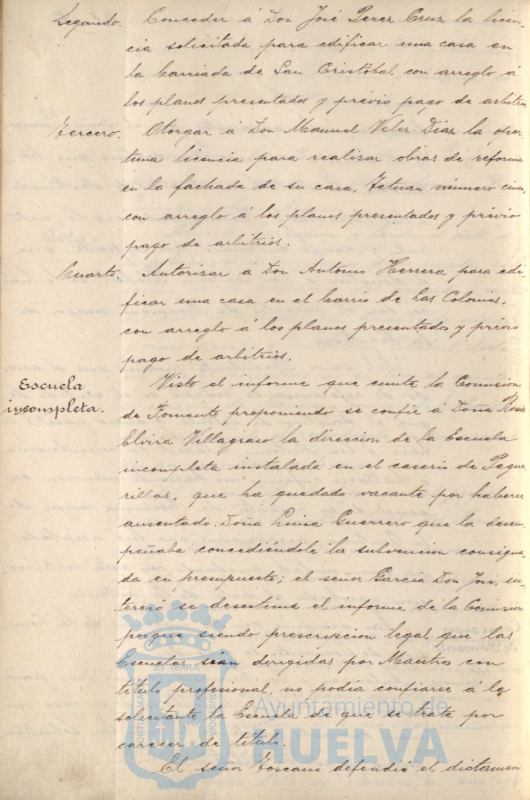 Segundo. Conceder á Don José Perez Cruz la licen-
cia solicitada para edificar una casa en
la barriada de San Cristóbal con arreglo á
los planos presentados y previo pago de arbitrios
Tercero. Otorgar á Don Manuel Velez Diaz la opor-
tuna licencia para realizar obras de reforma
en la fachada de su casa, Tetuan número cinco,
con arreglo á los planos presentados y previo
pago de arbitrios.
Cuarto. Autorizar á Don Antonio Herrera para edi-
ficar una casa en el barrio de Las Colonias,
con arreglo á los planos presentados y previo
pago de arbitrios.
Escuela
incompleta.
Visto el informe que emite la Comision
de Fomento proponiendo se confie á Doña Rosa
Elvira Villagraso la direccion de la Escuela
incompleta instalada en el caserio de Pegue-
rillas, que ha quedado vacante por haberse
ausentado Doña Luisa Guerrero que la desem-
peñaba concediéndole la subvencion consigna-
da en presupuesto; el señor Garcia Don José, in-
teresó se desestime el informe de la Comision
porque siendo prescripcion legal que las
Escuelas sean dirigidas por Maestros con
titulo profesional, no podia confiarse á la
solicitante la Escuela de que se trata por
carecer de titulo.
El señor Toscano defendió el dictamen
Ayuntamiento de
HUELVA